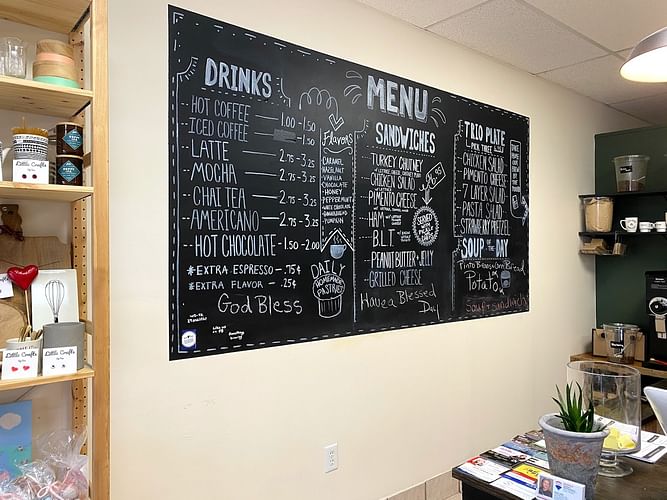 DRINKS
HOT COFFEE 1.00 - 1.50
ICED COFFEE - 1.50
LATTE 2.75 - 3.25
MOCHA 2.75 - 3.25
CHAI TEA 2.75 - 3.25
AMERICANO 2.75 - 3.25
HOT CHOCOLATE 1.50 - 2.00
*EXTRA ESPRESSO - .75¢
*EXTRA FLAVOR - .25¢
God Bless
Flavors
CARAMEL
HAZELNUT
VANILLA
CHOCOLATE
HONEY
PEPPERMINT
GINGERBREAD
PUMPKIN
DAILY
HOMEMADE
PASTRIES
MENU
SANDWICHES
TURKEY CHUTNEY
CHICKEN SALAD
PIMENTO CHEESE
HAM
B.L.T
PEANUT BUTTER & JELLY
GRILLED CHEESE
Have a Blessed
Day
SERVED
WITH
PICKLE
& CHIPS
TRIO PLATE
PICK THREE
CHICKEN SALAD
PIMENTO CHEESE
7 LAYER SALAD
PASTA SALAD
STRAWBERRY PRETZEL
SOUP OF THE DAY
Pinto Beans & Corn Bread
Potato
Soup & Sandwich
Little Crafts
Little Crafts
Little Crafts